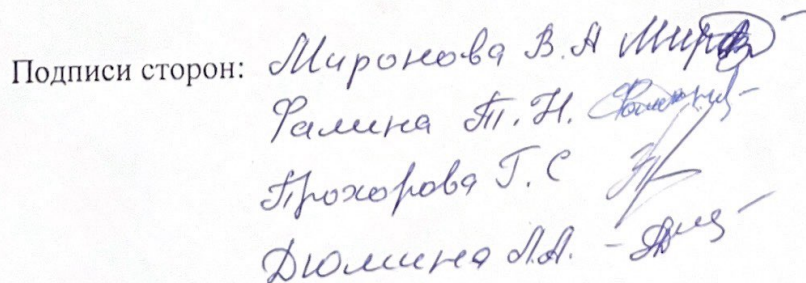 Подписи сторон: Миронова В.А
Фалина Т.Н.
Прохорова Г.С
Дюмина Л.А.